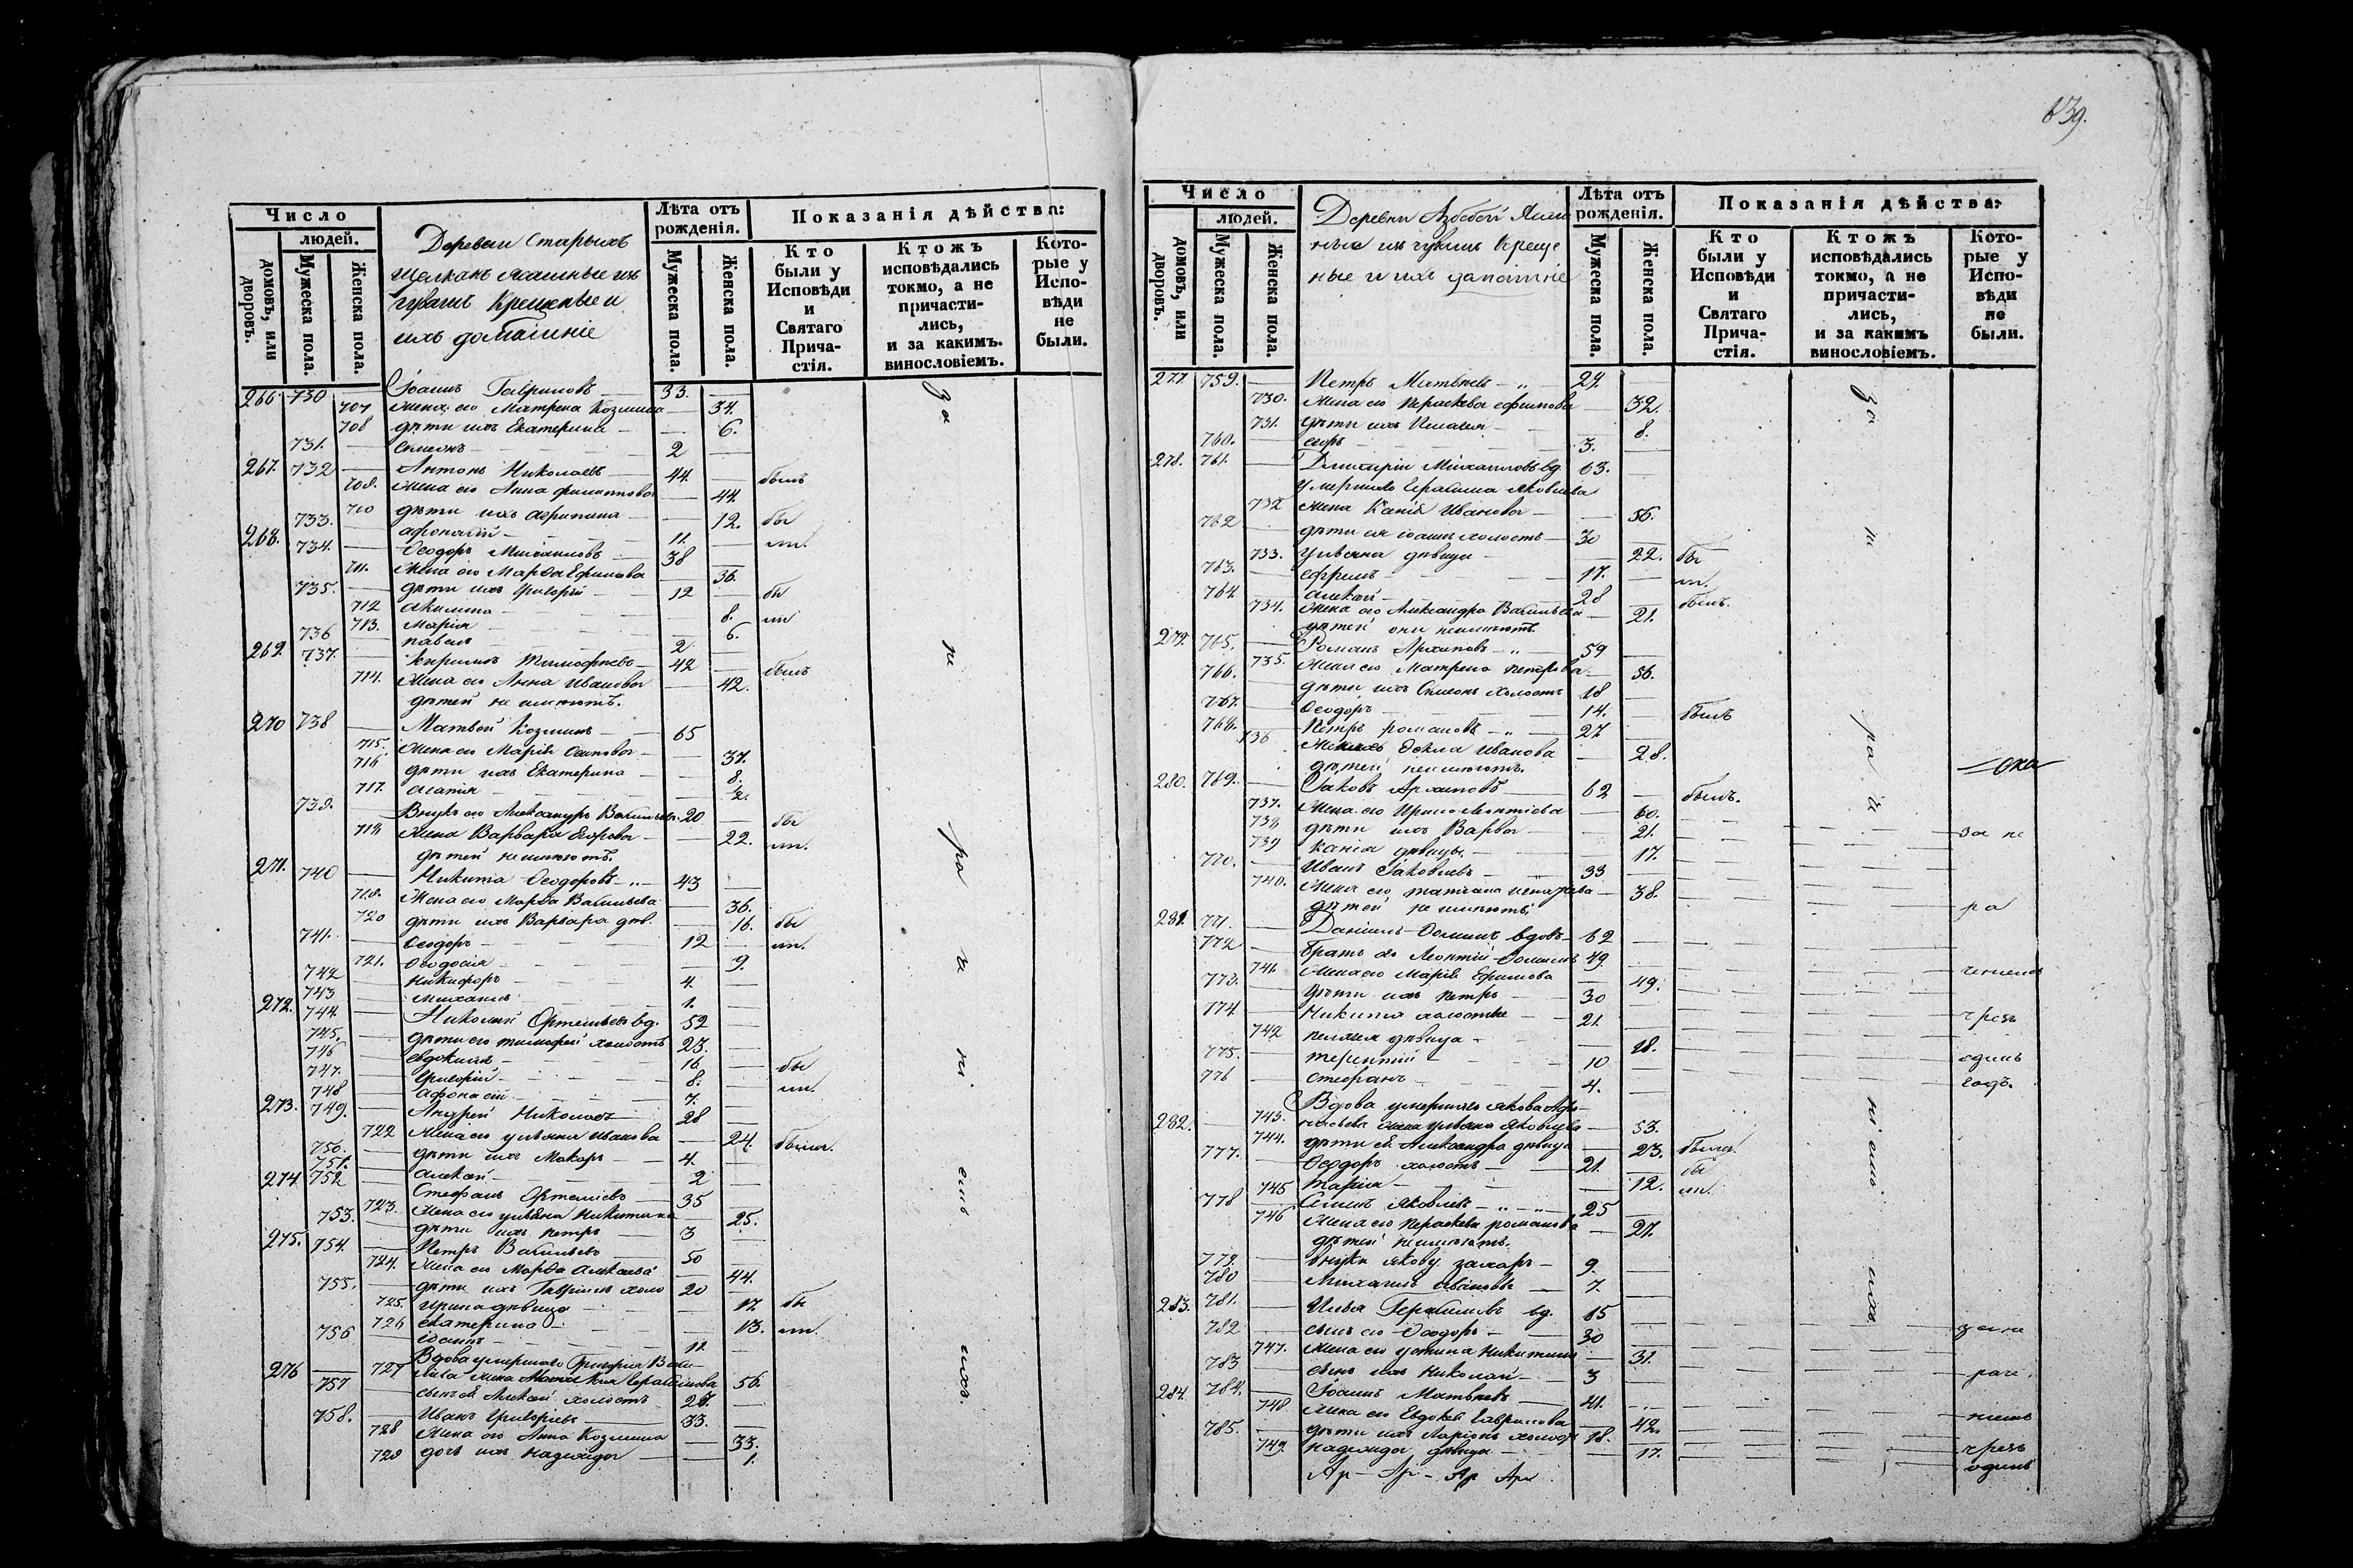 139.
Число
людей.
домовъ, или дворовъ.
Мужеска пола.
Женска пола.
Деревни Старыхъ
Щелканъ Ясашные изъ
чувашъ Крещеные и
ихъ домашніе
Лѣта отъ рожденія.
Мужеска пола.
Женска пола.
Показанія дѣйства:
Кто были у Исповѣди и Святаго Прича-стія.
Ктожъ исповѣдались токмо, а не причасти-лись, и за какимъ. винословіемъ.
Кото-рые у Испо-вѣди не были.
266. 730 — Іоаннъ Гавриловъ — 33.
707 жена его Матрена Козмина — 34.
708 дѣти ихъ Екатерина — 6.
731. — Симеонъ — 2
267. 732 — Антонъ Николаевъ — 44. — былъ
709. жена его Анна Филиппова — 44.
710 дѣти ихъ Агрипина — 12. бы
733. — Афонасій — 11. — ли.
268. 734. — Ѳеодоръ Михаиловъ — 38
711. жена его Марѳа Ефимова — 36.
735. — дѣти ихъ Григорій — 12 — бы
712 Акилина — 8. ли
713. Марія — 6.
736 — Павелъ — 2
269. 737. — Кирилъ Тимофеевъ — 42 — былъ
714. жена его Анна Иванова — 42.
дѣтей не имѣютъ.
270 738 — Матвей Козминъ — 65
715. жена его Марія Осипова — 37.
716 дѣти ихъ Екатерина — 8.
717. Агапія — 2.
739. — Внукъ его Александръ Васильевъ 20 — бы
718 жена Варвара Егорова — 22. ли.
дѣтей не имѣютъ.
271. 740 — Никита Ѳеодоровъ — 43
719. жена его Марѳа Васильева — 36.
720 дѣти ихъ Варвара дѣв. — 16. бы
741. — Ѳеодоръ — 12 — ли.
721. Ѳеодосія — 9.
742 — Никифоръ — 4.
743 — Михаилъ — 1.
272. 744 — Николай Артемьевъ вд. 52
745. — дѣти его Тимофей холостъ 23.
746 — Евдокимъ — 16 — бы
747. — Григорій — 8. — ли.
748 — Афонасій — 7.
273. 749. — Андрей Николаевъ 28
722 жена его Ульяна Иванова — 24. была.
750. — дѣти ихъ Макаръ — 4.
751. — Алексѣй — 2
274 752 — Стефанъ Артемьевъ 35
723. жена его Ульяна Никитина — 25.
753. — дѣти ихъ Петръ — 3
275. 754. — Петръ Васильевъ 50
724. жена его Марѳа Алексѣева — 44.
755. — дѣти ихъ Гавріилъ холо 20
725. Ирина дѣвица — 17. бы
726 Екатерина — 13. ли.
756 — Іоаннъ — 11
276 — 727 Вдова умершаго Григорія Васи-
льева жена Герасимова 56.
757 — сынъ ей Алексѣй холостъ 26.
758. — Иванъ Григорьевъ 33.
728 жена его Анна Козмина — 33.
729 дочь ихъ Надежда — 1.
за не ра чі ні емъ ихъ.
Число
людей.
домовъ, или дворовъ.
Мужеска пола.
Женска пола.
Деревни Ясаш
ные изъ чувашъ Креще
ные и ихъ домашніе
Лѣта отъ рожденія.
Мужеска пола.
Женска пола.
Показанія дѣйства:
Кто были у Исповѣди и Святаго Прича-стія.
Ктожъ исповѣдались токмо, а не причасти-лись, и за какимъ винословіемъ.
Кото-рые у Испо-вѣди не были.
277 759. — Петръ Матвѣевъ — 29.
730. жена его Параскева Ефимова — 32.
731. дѣти ихъ — 8.
760. — 3.
278. 761. — Димитрій Михаиловъ вд. 63.
умершаго Герасима Яковлева
732 жена Ксенія Иванова — 56.
762 — дѣти ея Іоаннъ холостъ — 30
733. Ульяна дѣвица — 22. бы
763. — Ефремъ — 17. — ли.
764. — Алексѣй — 28 — былъ.
734. жена его Александра Васильева — 21.
дѣтей они неимѣютъ.
279. 765. — Романъ Архиповъ — 59
735. жена его Матрена Петрова — 56.
766. — дѣти ихъ Симеонъ холостъ 18
767. — Ѳеодоръ — 14. — былъ
768. — Петръ Романовъ — 27
736 Ѳекла Иванова — 28.
дѣтей неимѣютъ.
280. 769. — Іаковъ Архиповъ — 62 — былъ.
737. жена его Ирина Леонтіева — 60.
738 дѣти ихъ Варвара — 21. за не
739 Ксенія дѣвицы. — 17.
770. — Иванъ Іаковлевъ — 33
740. жена его Татіана — 38. ра
дѣтей не имѣютъ.
281. 771. — Даніилъ Ѳоминъ вдовъ — 62
772 — братъ его Леонтій Ѳоминъ 49.
741 жена его Марія Ефимова — 49. ченіемъ
773. — дѣти ихъ Петръ — 30
774 — Никита холостые — 21. чрезъ
742 Пелагея дѣвица — 18.
775. — Терентій — 10 одинъ
776 — Стефанъ — 4. годъ.
282. — 743. Вдова умершаго Якова Афо-
насьева жена Ульяна Яковлева — 53.
744. дѣти ей Александра дѣвица — 23. была.
777. — Ѳеодоръ холостъ — 21. — бы
745 Марія — 12. ли.
778 — Яковлевъ — 25
746 жена его Параскева Романова — 27.
дѣтей неимѣютъ.
779. — внуки Якову Захаръ — 9.
780 — Михаилъ Ивановъ — 7.
283. 781. — Илья Герасимовъ вд. 65
782 — сынъ его Ѳеодоръ — 30 за не
747. жена его Устина Никитина — 31.
783 — сынъ ихъ Николай — 3 раче
284. 784. — Іоаннъ Матвѣевъ — 41.
748 жена его Евдокея Гаврилова — 42. ніемъ
785. — дѣти ихъ Ларіонъ холост 18. чрезъ
749. Надежда дѣвица — 17. одинъ
за не ра чі ні емъ ихъ